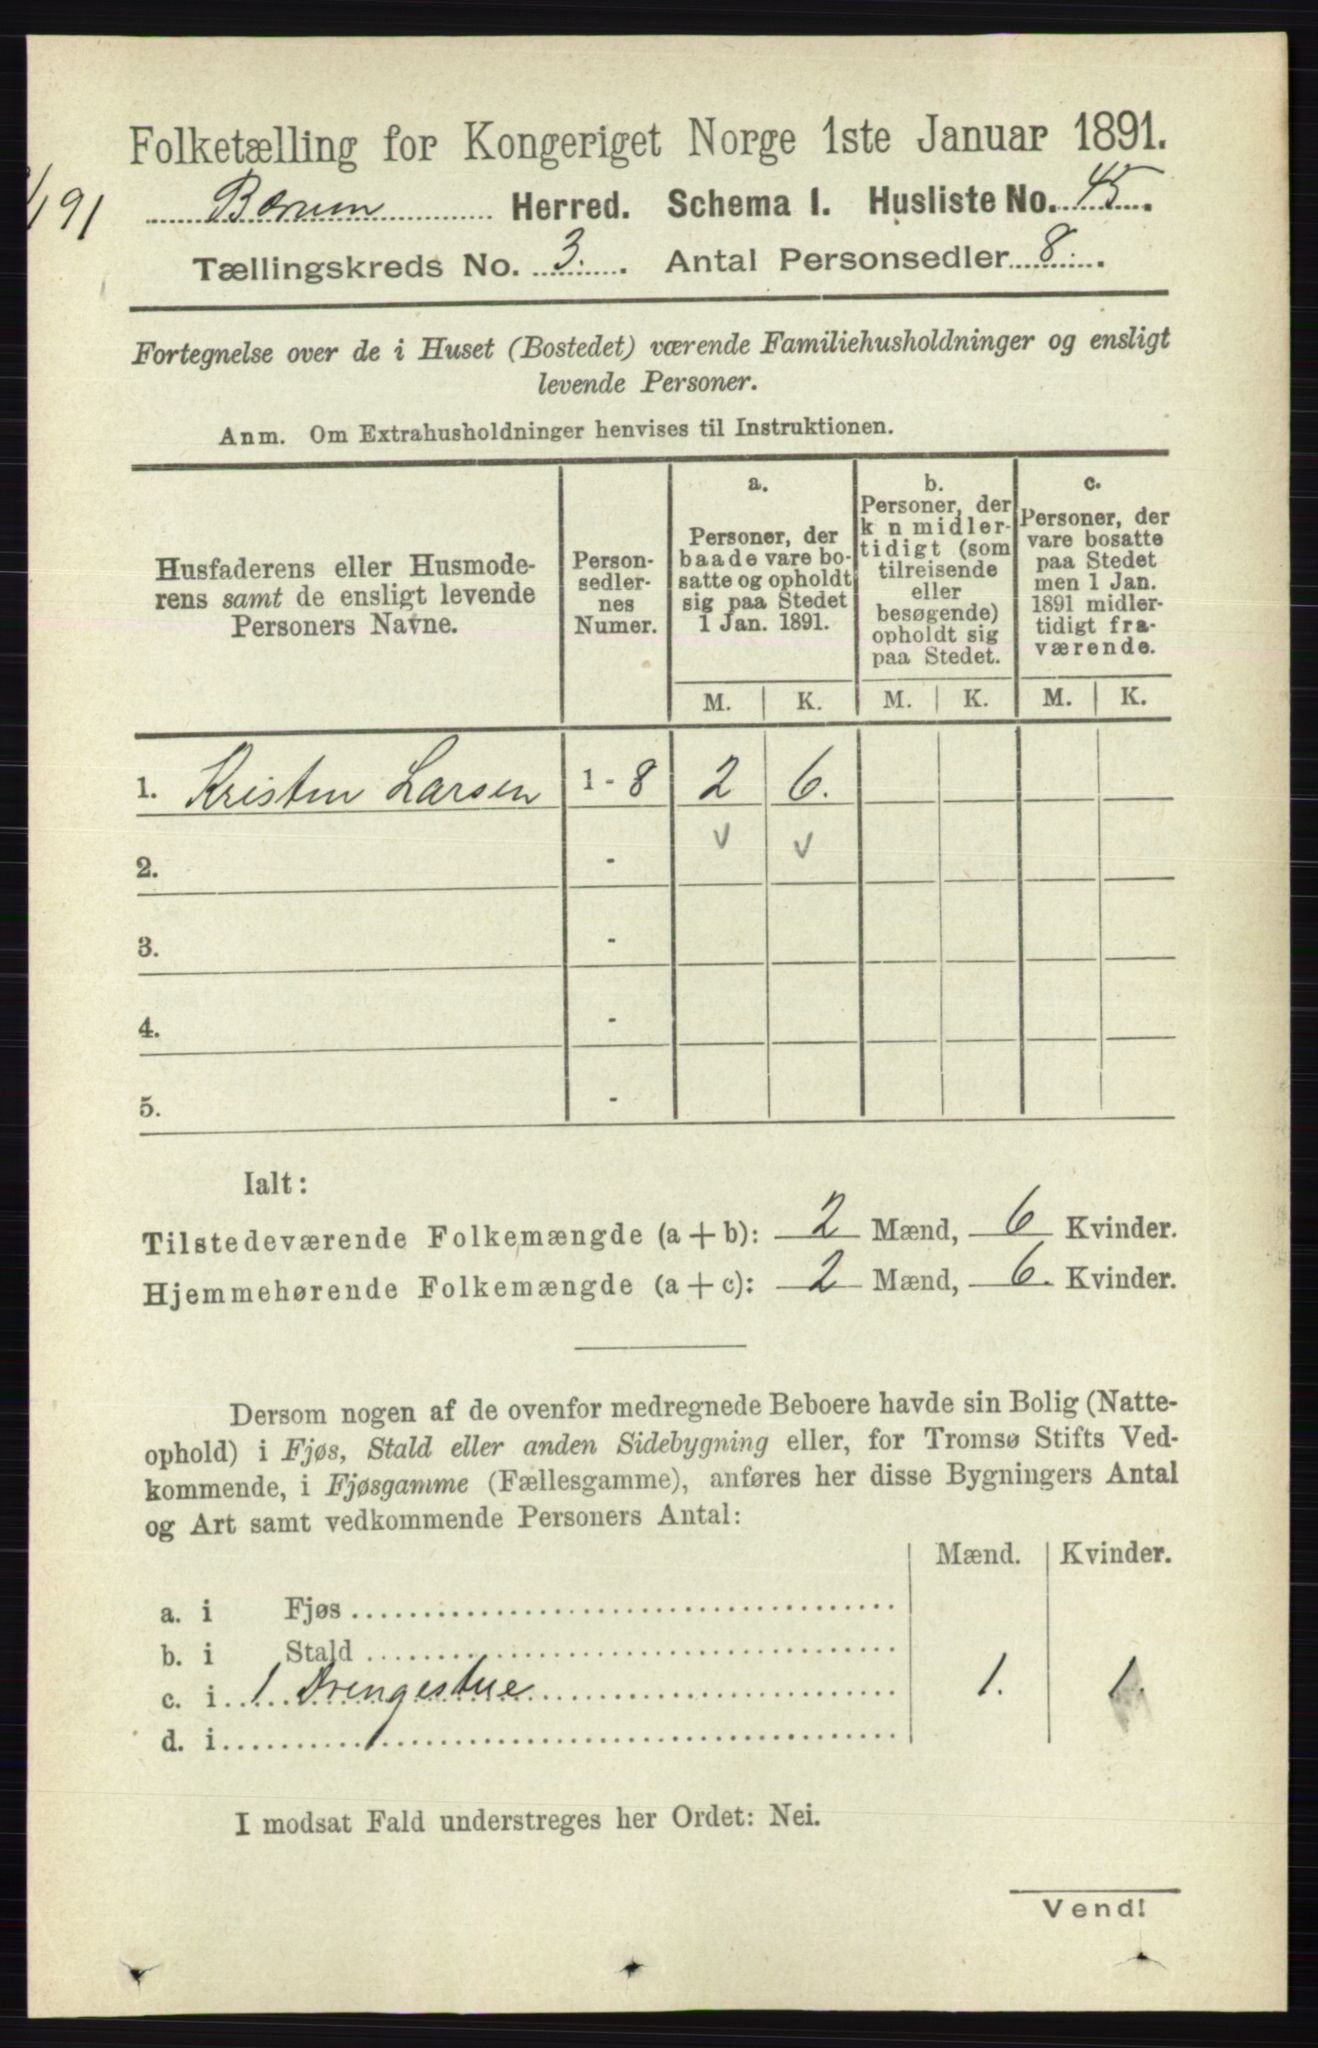 Folketælling for Kongeriget Norge 1ste Januar 1891.
191
Bærum Herred. Schema I. Husliste No. 45.
Tællingskreds No. 3. Antal Personsedler 8.
Fortegnelse over de i Huset (Bostedet) værende Familiehusholdninger og ensligt
levende Personer.
Anm. Om Extrahusholdninger henvises til Instruktionen.
Husfaderens eller Husmode-
rens samt de ensligt levende
Personers Navne.
Person-
sedler-
nes
Numer.
a.
Personer, der
baade vare bo-
satte og opholdt
sig paa Stedet
1 Jan. 1891.
b.
Personer, der
k n midler-
tidigt (som
tilreisende
eller
besøgende)
opholdt sig
paa Stedet.
c.
Personer, der
vare bosatte
paa Stedet
men 1 Jan.
1891 midler-
tidigt fra-
værende.
M. K. M. K. M. K.
1. Kristen Larsen 1 - 8 2 6.
2. -
3. -
4. -
5. -
Ialt:
Tilstedeværende Folkemængde (a + b): 2 Mænd, 6 Kvinder.
Hjemmehørende Folkemængde (a + c): 2 Mænd, 6. Kvinder.
Dersom nogen af de ovenfor medregnede Beboere havde sin Bolig (Natte-
ophold) i Fjøs, Stald eller anden Sidebygning eller, for Tromsø Stifts Ved-
kommende, i Fjøsgamme (Fællesgamme), anføres her disse Bygningers Antal
og Art samt vedkommende Personers Antal:
Mænd. Kvinder.
a. i Fjøs
b. i Stald
c. i 1 Drengestue 1. 1.
d. i
I modsat Fald understreges her Ordet: Nei.
Vend!